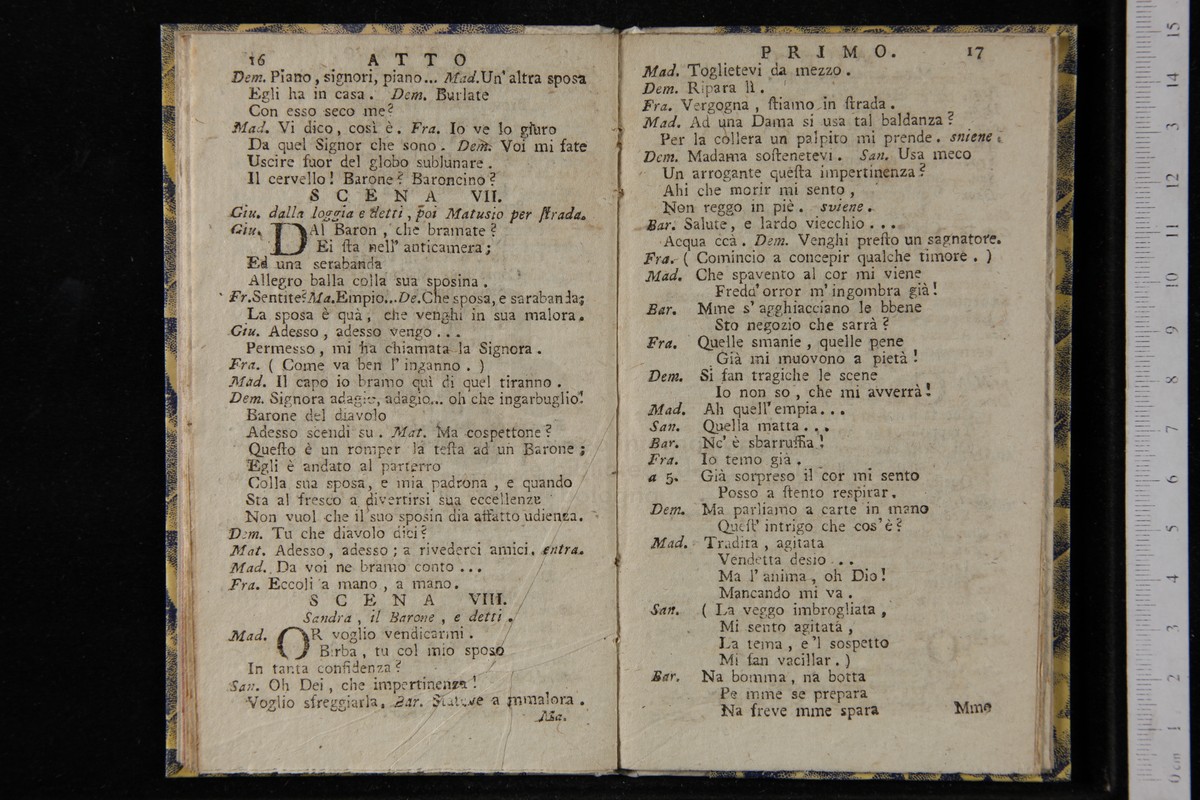 16 ATTO
Dem. Piano, signori, piano... Mad. Un' altra sposa
Egli ha in casa. Dem. Burlate
Con esso seco me?
Mad. Vi dico, così è. Fra. Io ve lo giuro
Da quel Signor che sono. Dem. Voi mi fate
Uscire fuor del globo sublunare.
Il cervello! Barone? Baroncino?
SCENA VII.
Giu. dalla loggia e detti, poi Matusio per ſtrada.
Giu. DAl Baron, che bramate?
Ei ſta nell' anticamera;
Ed una serabanda
Allegro balla colla sua sposina.
Fr. Sentite? Ma. Empio... De. Che sposa, e sarabanda;
La sposa è quà, che venghi in sua malora.
Giu. Adesso, adesso vengo...
Permesso, mi ha chiamata la Signora.
Fra. ( Come va ben l' inganno. )
Mad. Il capo io bramo quì di quel tiranno.
Dem. Signora adagio, adagio... oh che ingarbuglio!
Barone del diavolo
Adesso scendi su. Mat. Ma cospettone?
Queſto è un romper la teſta ad un Barone;
Egli è andato al parterro
Colla sua sposa, e mia padrona, e quando
Sta al fresco a divertirsi sua eccellenza
Non vuol che il suo sposin dia affatto udienza.
Dem. Tu che diavolo dici?
Mat. Adesso, adesso; a rivederci amici. entra.
Mad. Da voi ne bramo conto...
Fra. Eccoli a mano, a mano.
SCENA VIII.
Sandra, il Barone, e detti.
Mad. OR voglio vendicarmi.
Birba, tu col mio sposo
In tanta confidenza?
San. Oh Dei, che impertinenza!
Voglio sfreggiarla, Bar. Stateve a mmalora.
Ma.
PRIMO. 17
Mad. Toglietevi da mezzo.
Dem. Ripara lì.
Fra. Vergogna, ſtiamo in ſtrada.
Mad. Ad una Dama si usa tal baldanza?
Per la collera un palpito mi prende. sniene.
Dem. Madama soſtenetevi. San. Usa meco
Un arrogante queſta impertinenza?
Ahi che morir mi sento,
Non reggo in piè. sviene.
Bar. Salute, e lardo viecchio...
Acqua ccà. Dem. Venghi preſto un sagnatore.
Fra. ( Comincio a concepir qualche timore. )
Mad. Che spavento al cor mi viene
Fredd' orror m' ingombra già!
Bar. Mme s' agghiacciano le bbene
Sto negozio che sarrà?
Fra. Quelle smanie, quelle pene
Già mi muovono a pietà!
Dem. Si fan tragiche le scene
Io non so, che mi avverrà!
Mad. Ah quell' empia...
San. Quella matta...
Bar. Nc' è sbarruffa!
Fra. Io temo già.
a 5. Già sorpreso il cor mi sento
Posso a ſtento respirar.
Dem. Ma parliamo a carte in mano
Queſt' intrigo che cos'è?
Mad. Tradita, agitata
Vendetta desio...
Ma l' anima, oh Dio!
Mancando mi va.
San. ( La veggo imbrogliata,
Mi sento agitata,
La tema, e 'l sospetto
Mi fan vacillar. )
Bar. Na bomma, na botta
Pe mme se prepara
Na freve mme spara
Mme